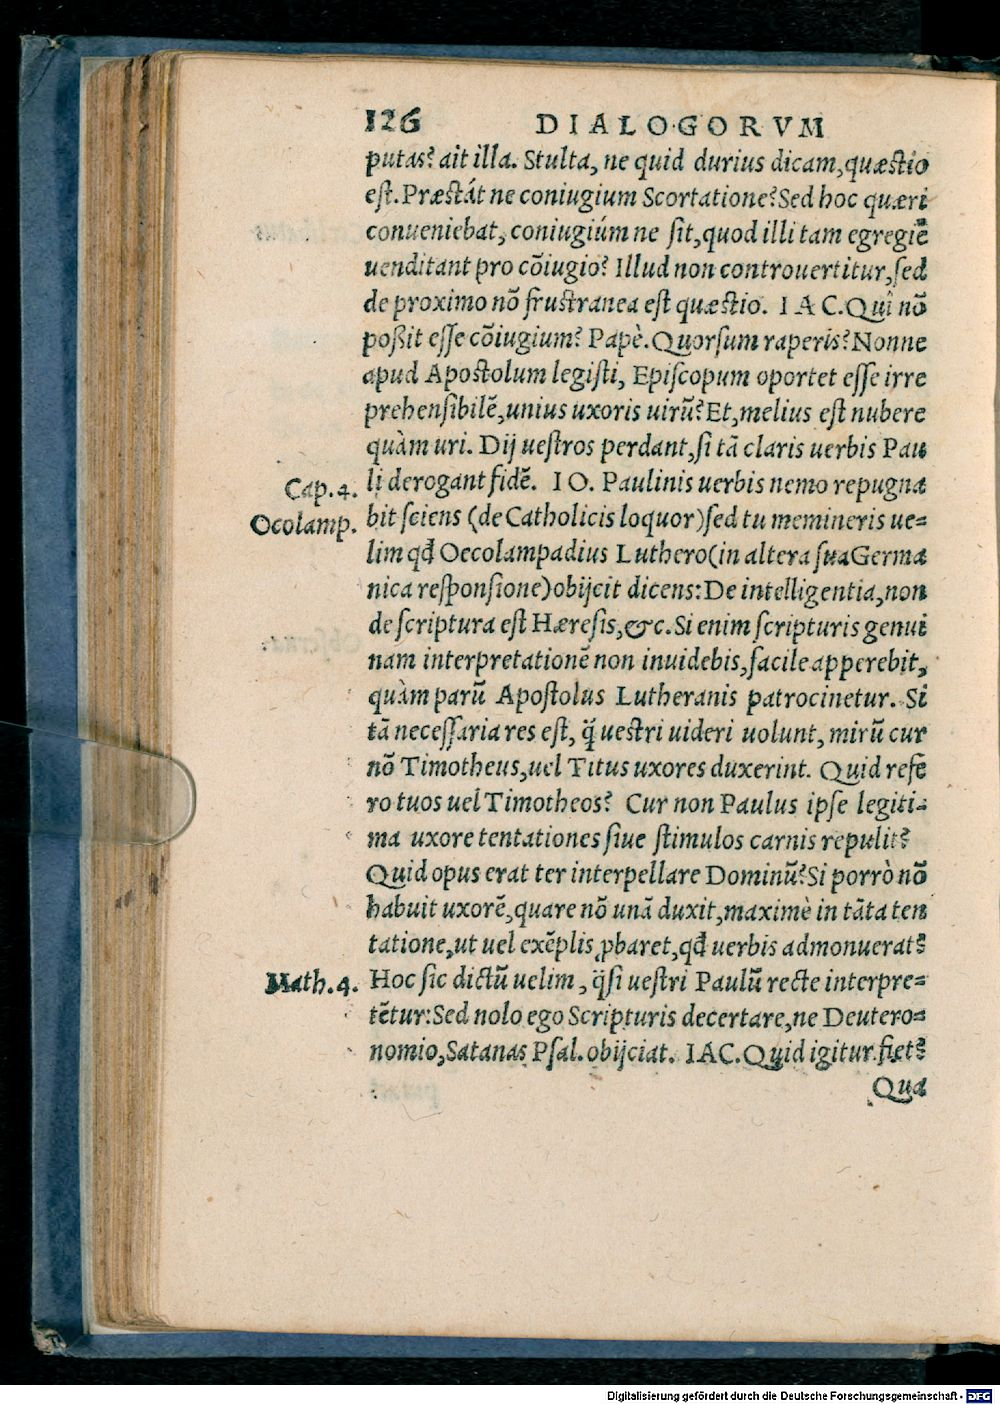 126 DIALOGORVM
putas? ait illa. Stulta, ne quid durius dicam, quæstio
est. Præstát ne coniugium Scortatione? Sed hoc quæri
conueniebat, coniugiúm ne sit, quod illi tam egregiè
uenditant pro cōiugio? Illud non controuertitur, sed
de proximo nō frustranea est quæstio. IAC. Quî nō
poßit esse cōiugium? Papè. Quorsum raperis? Nonne
apud Apostolum legisti, Episcopum oportet esse irre
prehensibilē, unius uxoris uirū? Et, melius est nubere
quàm uri. Dij uestros perdant, si tā claris uerbis Pau
Cap. 4. li derogant fidē. IO. Paulinis uerbis nemo repugna
Ocolamp. bit sciens (de Catholicis loquor) sed tu memineris ue=
lim qđ Oecolampadius Luthero (in altera sua Germa
nica responsione) obijcit dicens: De intelligentia, non
de scriptura est Hæresis, &c. Si enim scripturis genui
nam interpretationē non inuidebis, facile apperebit,
quàm parū Apostolus Lutheranis patrocinetur. Si
tā necessaria res est, q̃ uestri uideri uolunt, mirū cur
nō Timotheus, uel Titus uxores duxerint. Quid refe
ro tuos uel Timotheos? Cur non Paulus ipse legiti=
ma uxore tentationes siue stimulos carnis repulit?
Quid opus erat ter interpellare Dominū? Si porrò nō
habuit uxorē, quare nō unā duxit, maximè in tāta ten
tatione, ut uel exēplis ꝓbaret, qđ uerbis admonuerat?
Math. 4. Hoc sic dictū uelim, q̃si uestri Paulū recte interpre=
tētur: Sed nolo ego Scripturis decertare, ne Deutero=
nomio, Satanas Psal. obijciat. IAC. Quid igitur fiet?
Qua
Digitalisierung gefördert durch die Deutsche Forschungsgemeinschaft - DFG